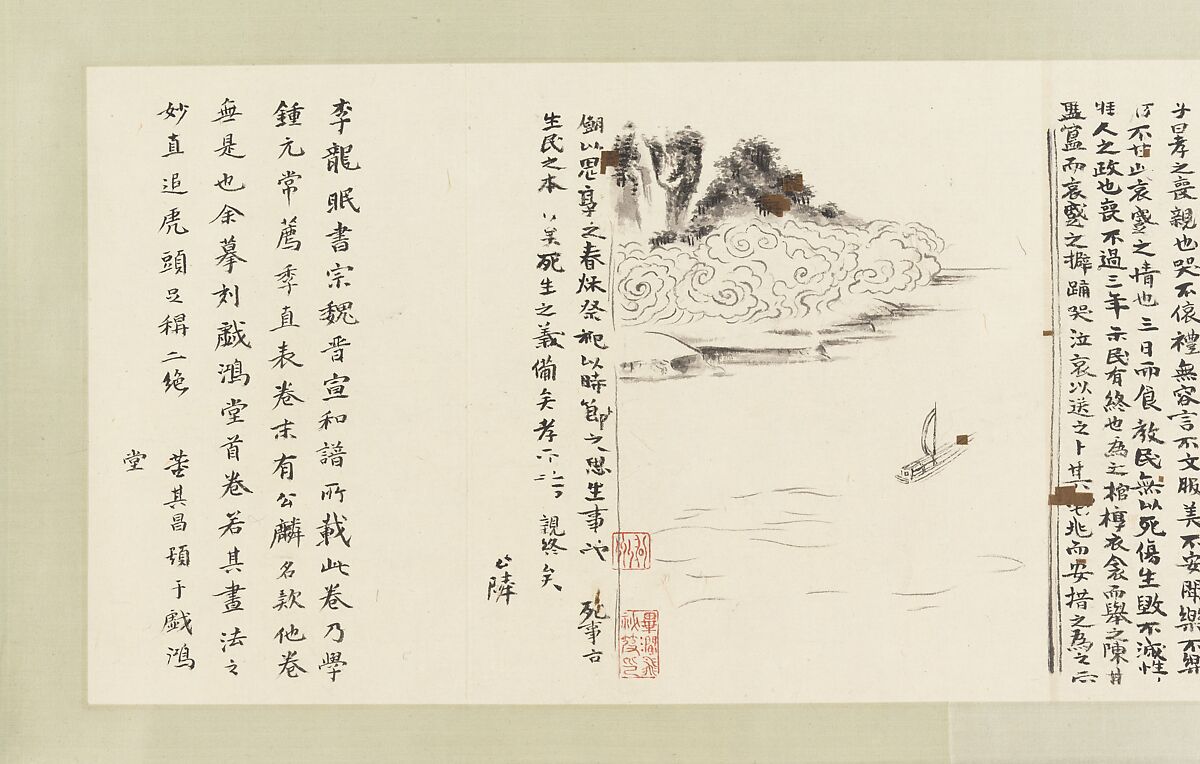 子曰孝之喪親也哭不偯禮無容言不文服美不安聞樂不樂
不甘此哀慼之情也三日而食教民無以死傷生毀不滅性
人之政也喪不過三年示民有終也為之棺椁衣衾而舉之陳其
簋而哀慼之擗踊哭泣哀以送之卜其兆而安措之為之
以思享之春秋祭祀以時節之思生事死事
生民之本矣死生之義備矣孝親終矣
公麟
李龍眠書宗魏晉宣和譜所載此卷乃學
鍾元常薦季直表卷末有公麟名款他卷
無是也余摹刻戲鴻堂首卷若其畫法之
妙直追虎頭足稱二絕 董其昌題于戲鴻
堂